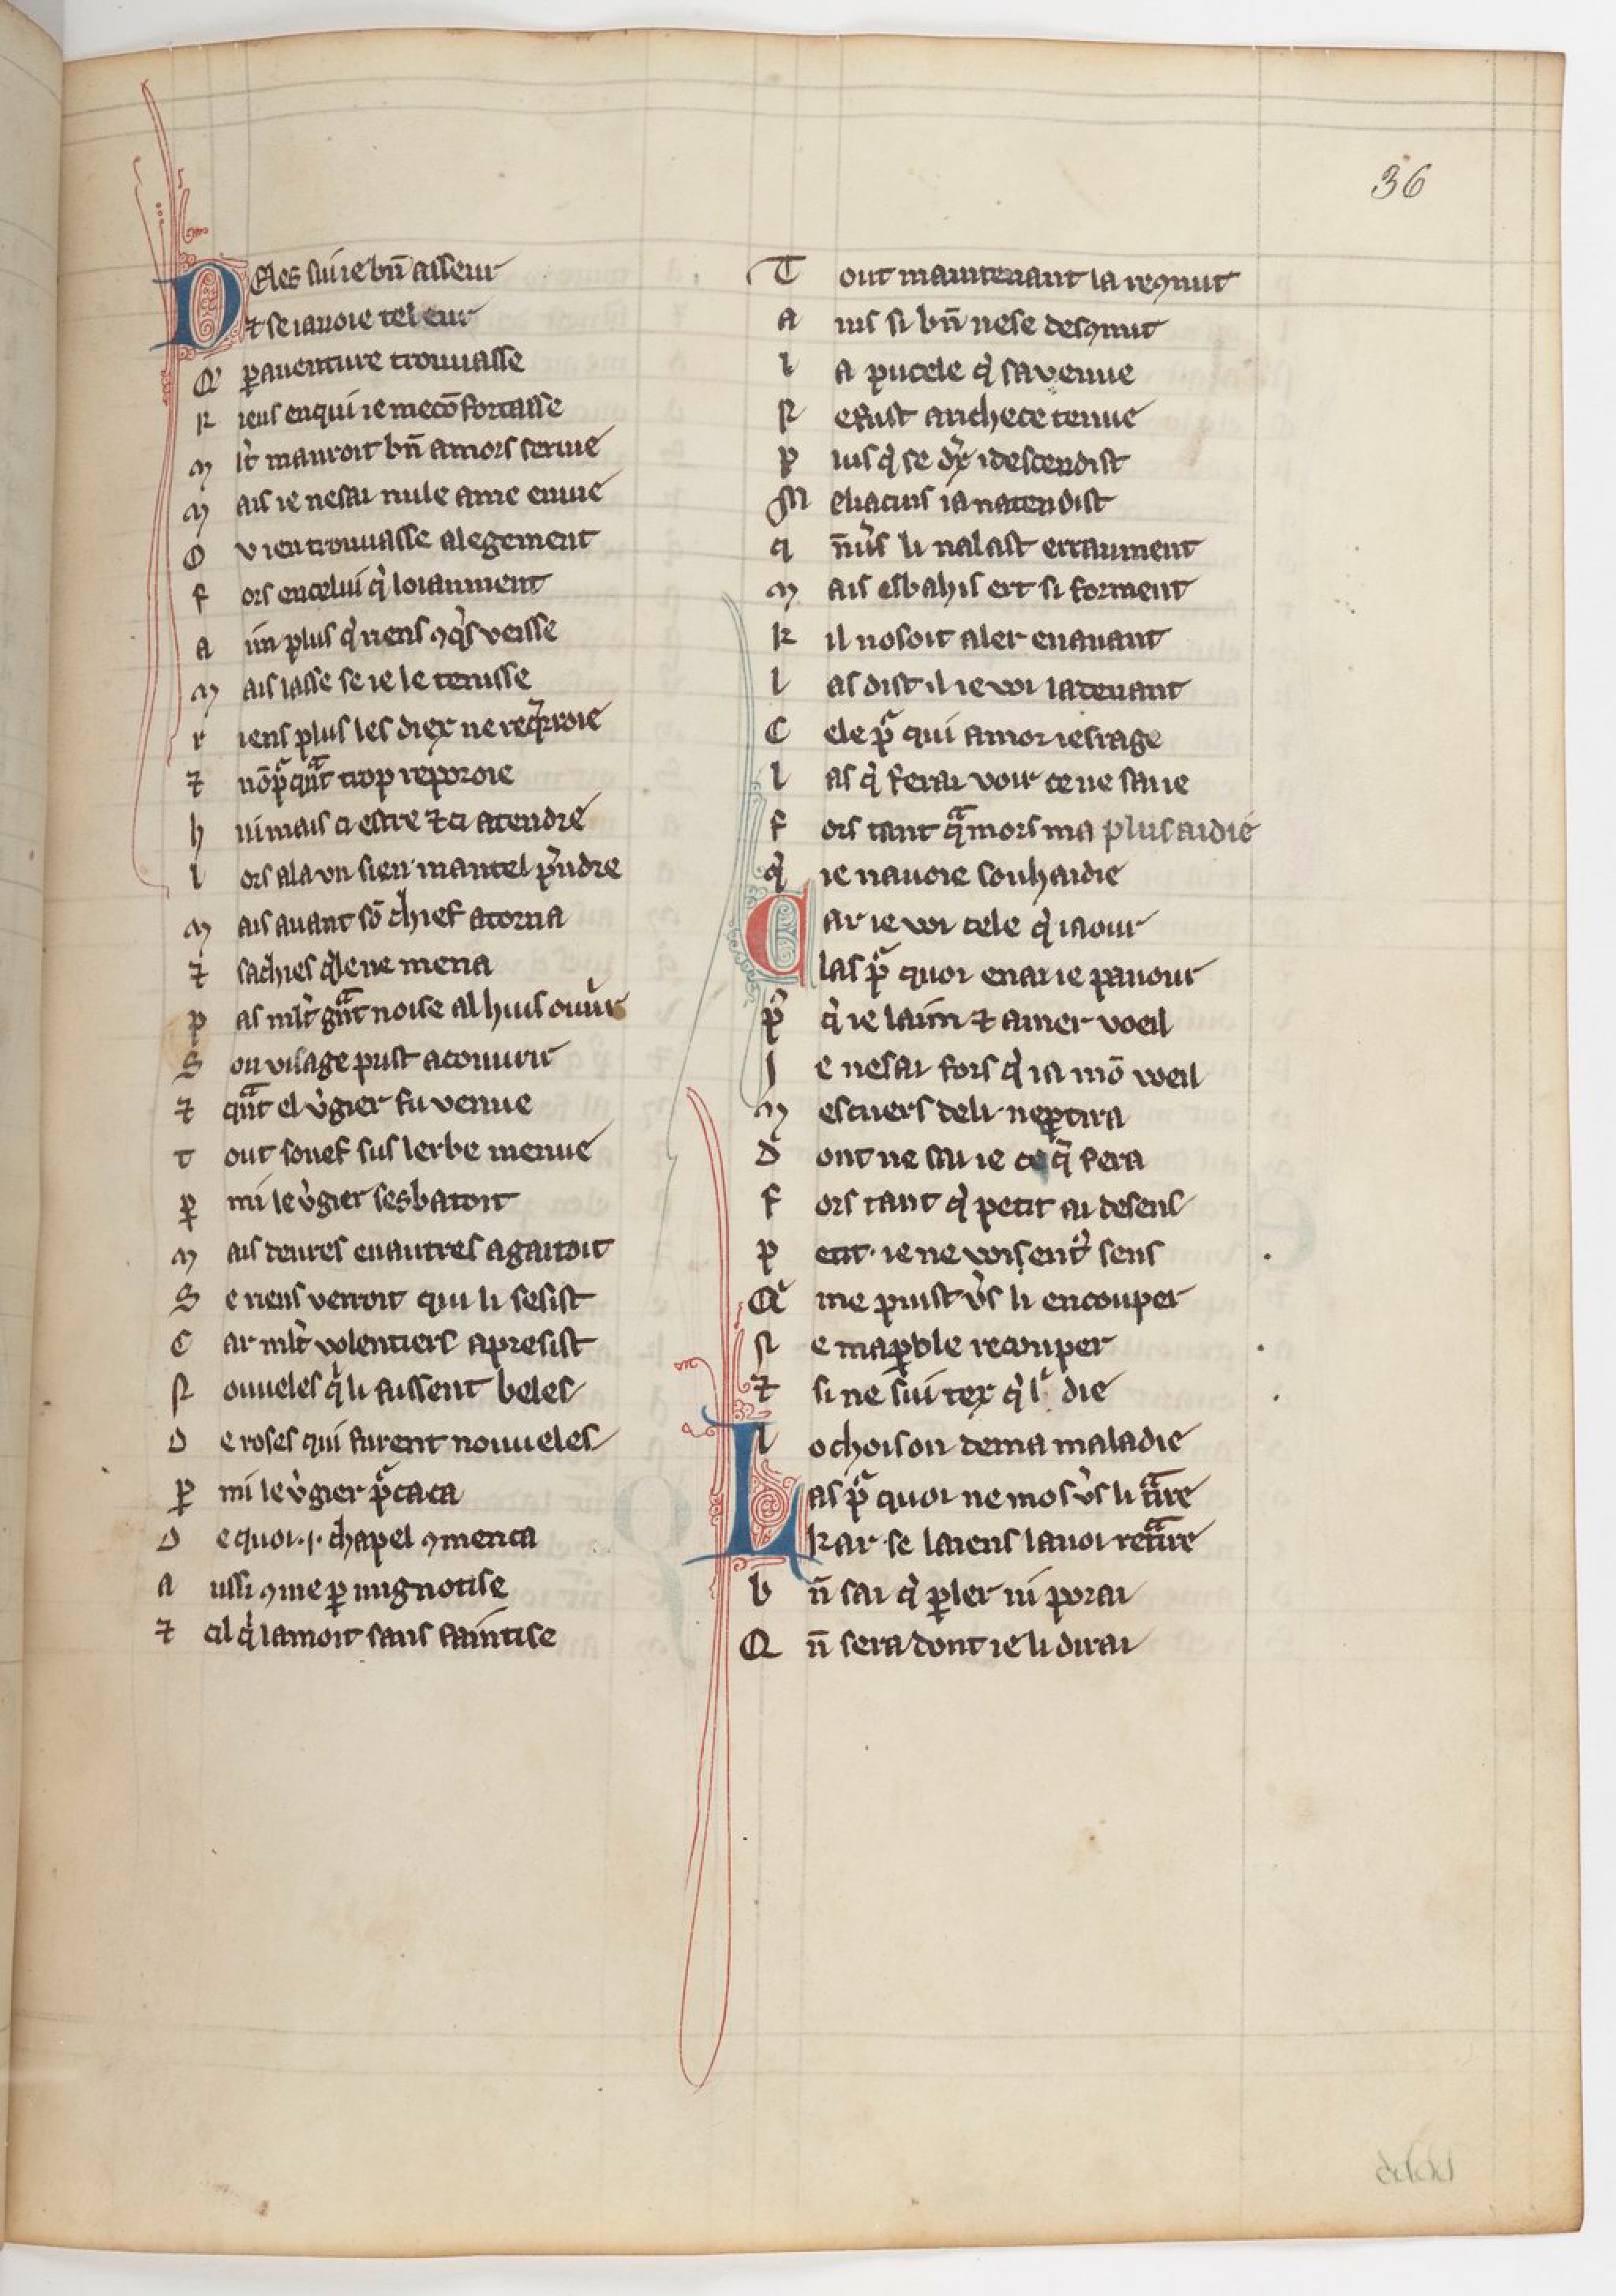 36
Deles sui ie bn̄ asseur
⁊ se iauoie tel eur
Qͥ ꝑauenture trouuasse
Riens en qui ie me cōfortasse
Ml̄t mauroit bn̄ amors seruie
Mais ie ne sai nule ame en uie
O v ien trouuasse alegement
Fors en celui qͥ loiaument
Aim plus qͥ riens ꝯqͥs veisse
Mais lasse se ie le tenisse
Riens plus les diex ne reqͥrroie
⁊ nōpͣqᷓnt trop reporoie
Huimais ci estre ⁊ ci atendre
Lors ala vn sien mantel pͥndre
Mais auant sō chief atorna
⁊ sachies qͥle ne mena
Pas ml̄t gᷓnt noise al huis ouurir
Son visage prist a couurir
⁊ qᷓnt el v̓gier fu venue
Tout souef sus lerbe menue
ꝑmi le v̓gier sesbatoit
Mais deures en autres agaitoit
Se riens verroit qui li sesist
Car ml̄t volentiers apresist
Nouueles qͥ li fuissent beles
De roses qui furent nouueles
ꝑmi le v̓gier pͣcaca
De quoi .i. chapel ꝯmenca
Aussi ꝯme ꝑ mignotise
⁊ cil qͥ lamoit sans faintise
Tout maintenant la reꝯnut
Ains si bn̄ ne se desꝯnut
La pucele qͥ sa venue
Ne fust a richece tenue
Plus qͥ se dex i descendist
Meliacins ia natendist
qn̄u̓s li nalast erraument
Mais esbahis ert si forment
Kil nosoit aler en auant
Las dist il ie voi la tenant
Cele pͣ qui amor iesrage
Las qͥ ferai voir ce ne sai ie
Fors tant qᷓmors ma plus aidie
qͥ ie nauoie souhaidie
Car ie voi cele qͥ iaour
Las pͣ quoi en ai ie pauour
pͣ qͥ ie laim ⁊ amer voeil
Je ne sai fors qͥ ia mō voeil
Mesciiers de li neꝑtira
Dont ne sai ie ce qͥ fera
Fors tant qͥ petit ai de sens
Petit ie ne voi sentͥ sens
Qͥ me puist v̓s li encouper
Ne ma ꝑole recouper
⁊ si ne sui tex qͥ lͥ die
Lochoison de ma maladie
Las pͣ quoi ne mos v̓s li tᷓire
Kar se laiens lauoi retᷓire
bn̄ sai qͥ ꝑler ni porai
Qn̄ sera dont ie li dirai